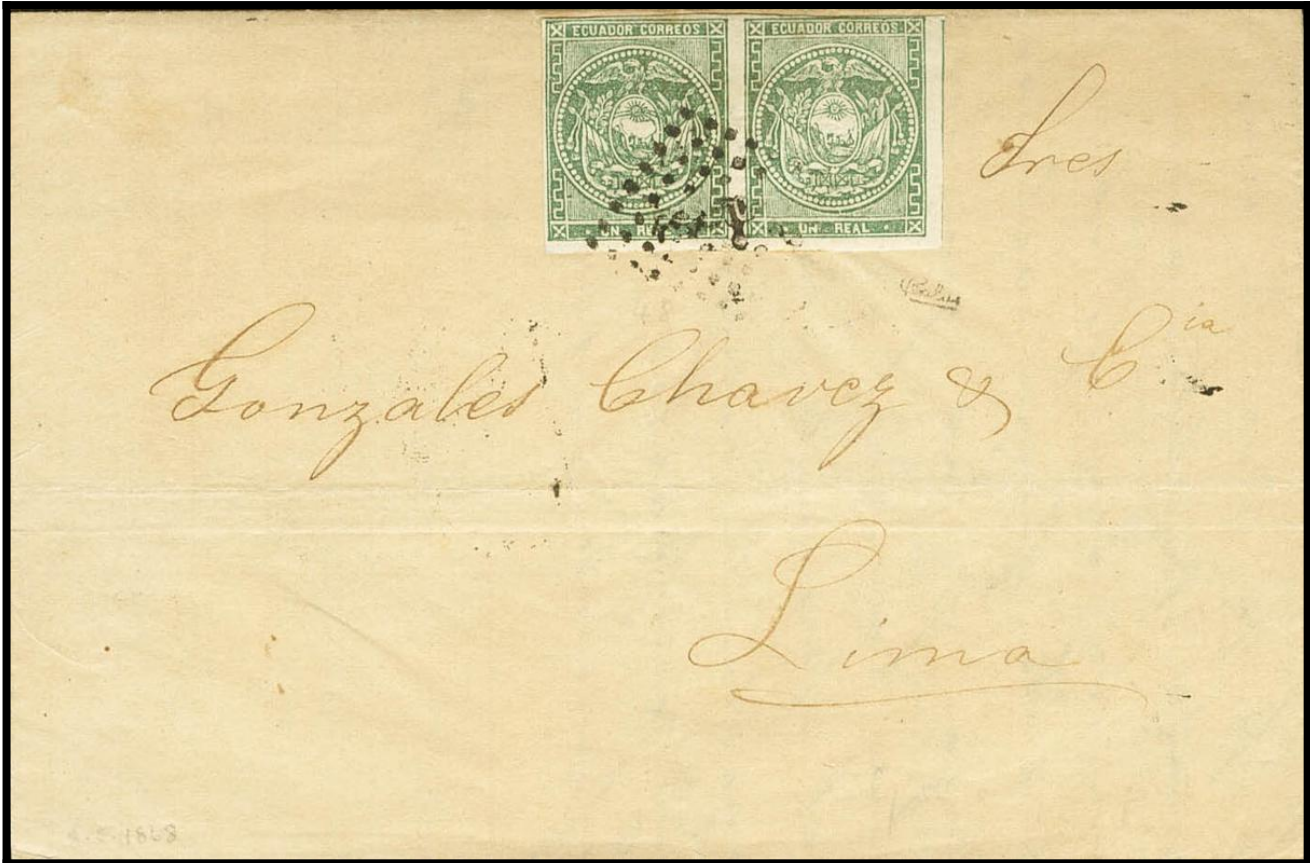 ECUADOR CORREOS ECUADOR CORREOS
UN REAL UN REAL
Sres
Gonzales Chavez & Cia
Lima
1868